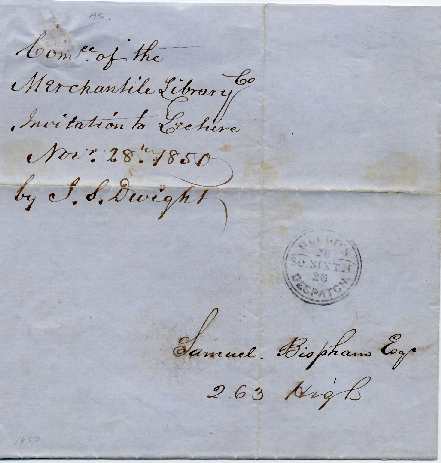 Comee. of the
Merchantile Library Co
Invitation to Lecture
Nov. 28th. 1850
by J. S. Dwight
DESPATCH
28
Samuel. Bispham Esqr
263 High
1850